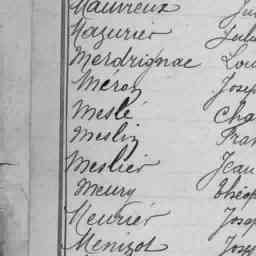 Mauvieux
Mazurier Jules
Merdrignac Lou
Méren Josep
Meslé Cha
Meslin Fran
Meslier Jean
Meury Théop
Meurier Josep
Menizot Josep